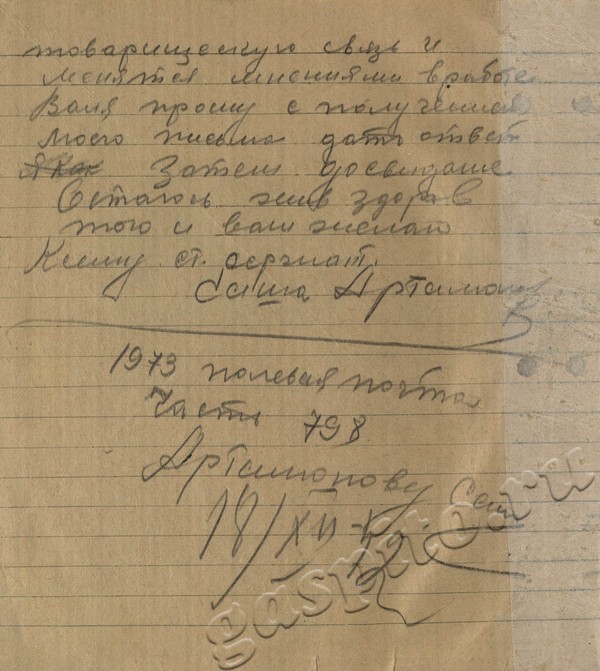 товарищескую связь и
менятся мнениями в работе
Валя прошу с получением
моего письма дать ответ
Затем досвидание
Остаюсь жив здоров
того и вам желаю
ст. сержант.
Саша Артамонов
1973 полевая почта
Часть 798
Артамонову Саш
18/XII-
gaspiko.ru